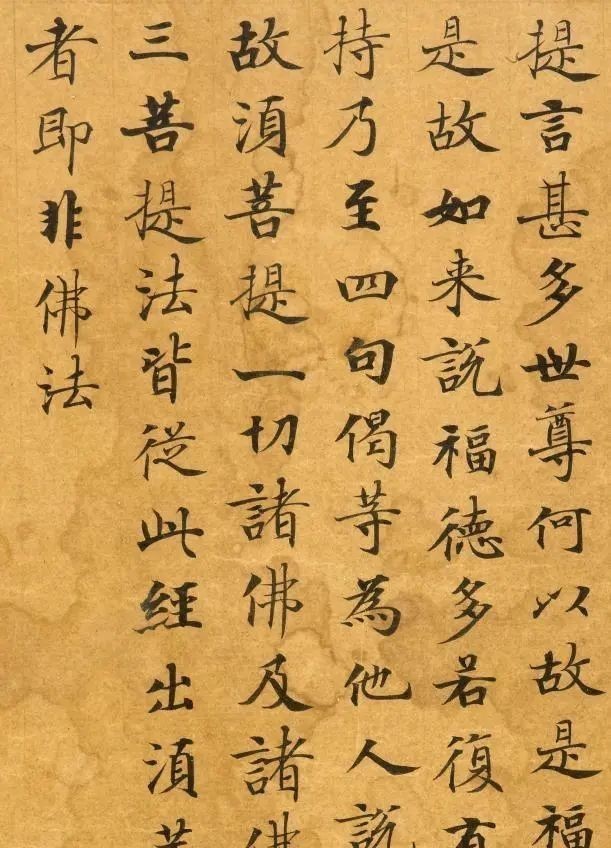 提言甚多世尊何以故是福
是故如来説福德多若復有
持乃至四句偈等為他人説
故須菩提一切諸佛及諸佛
三菩提法皆從此經出須菩
者即非佛法